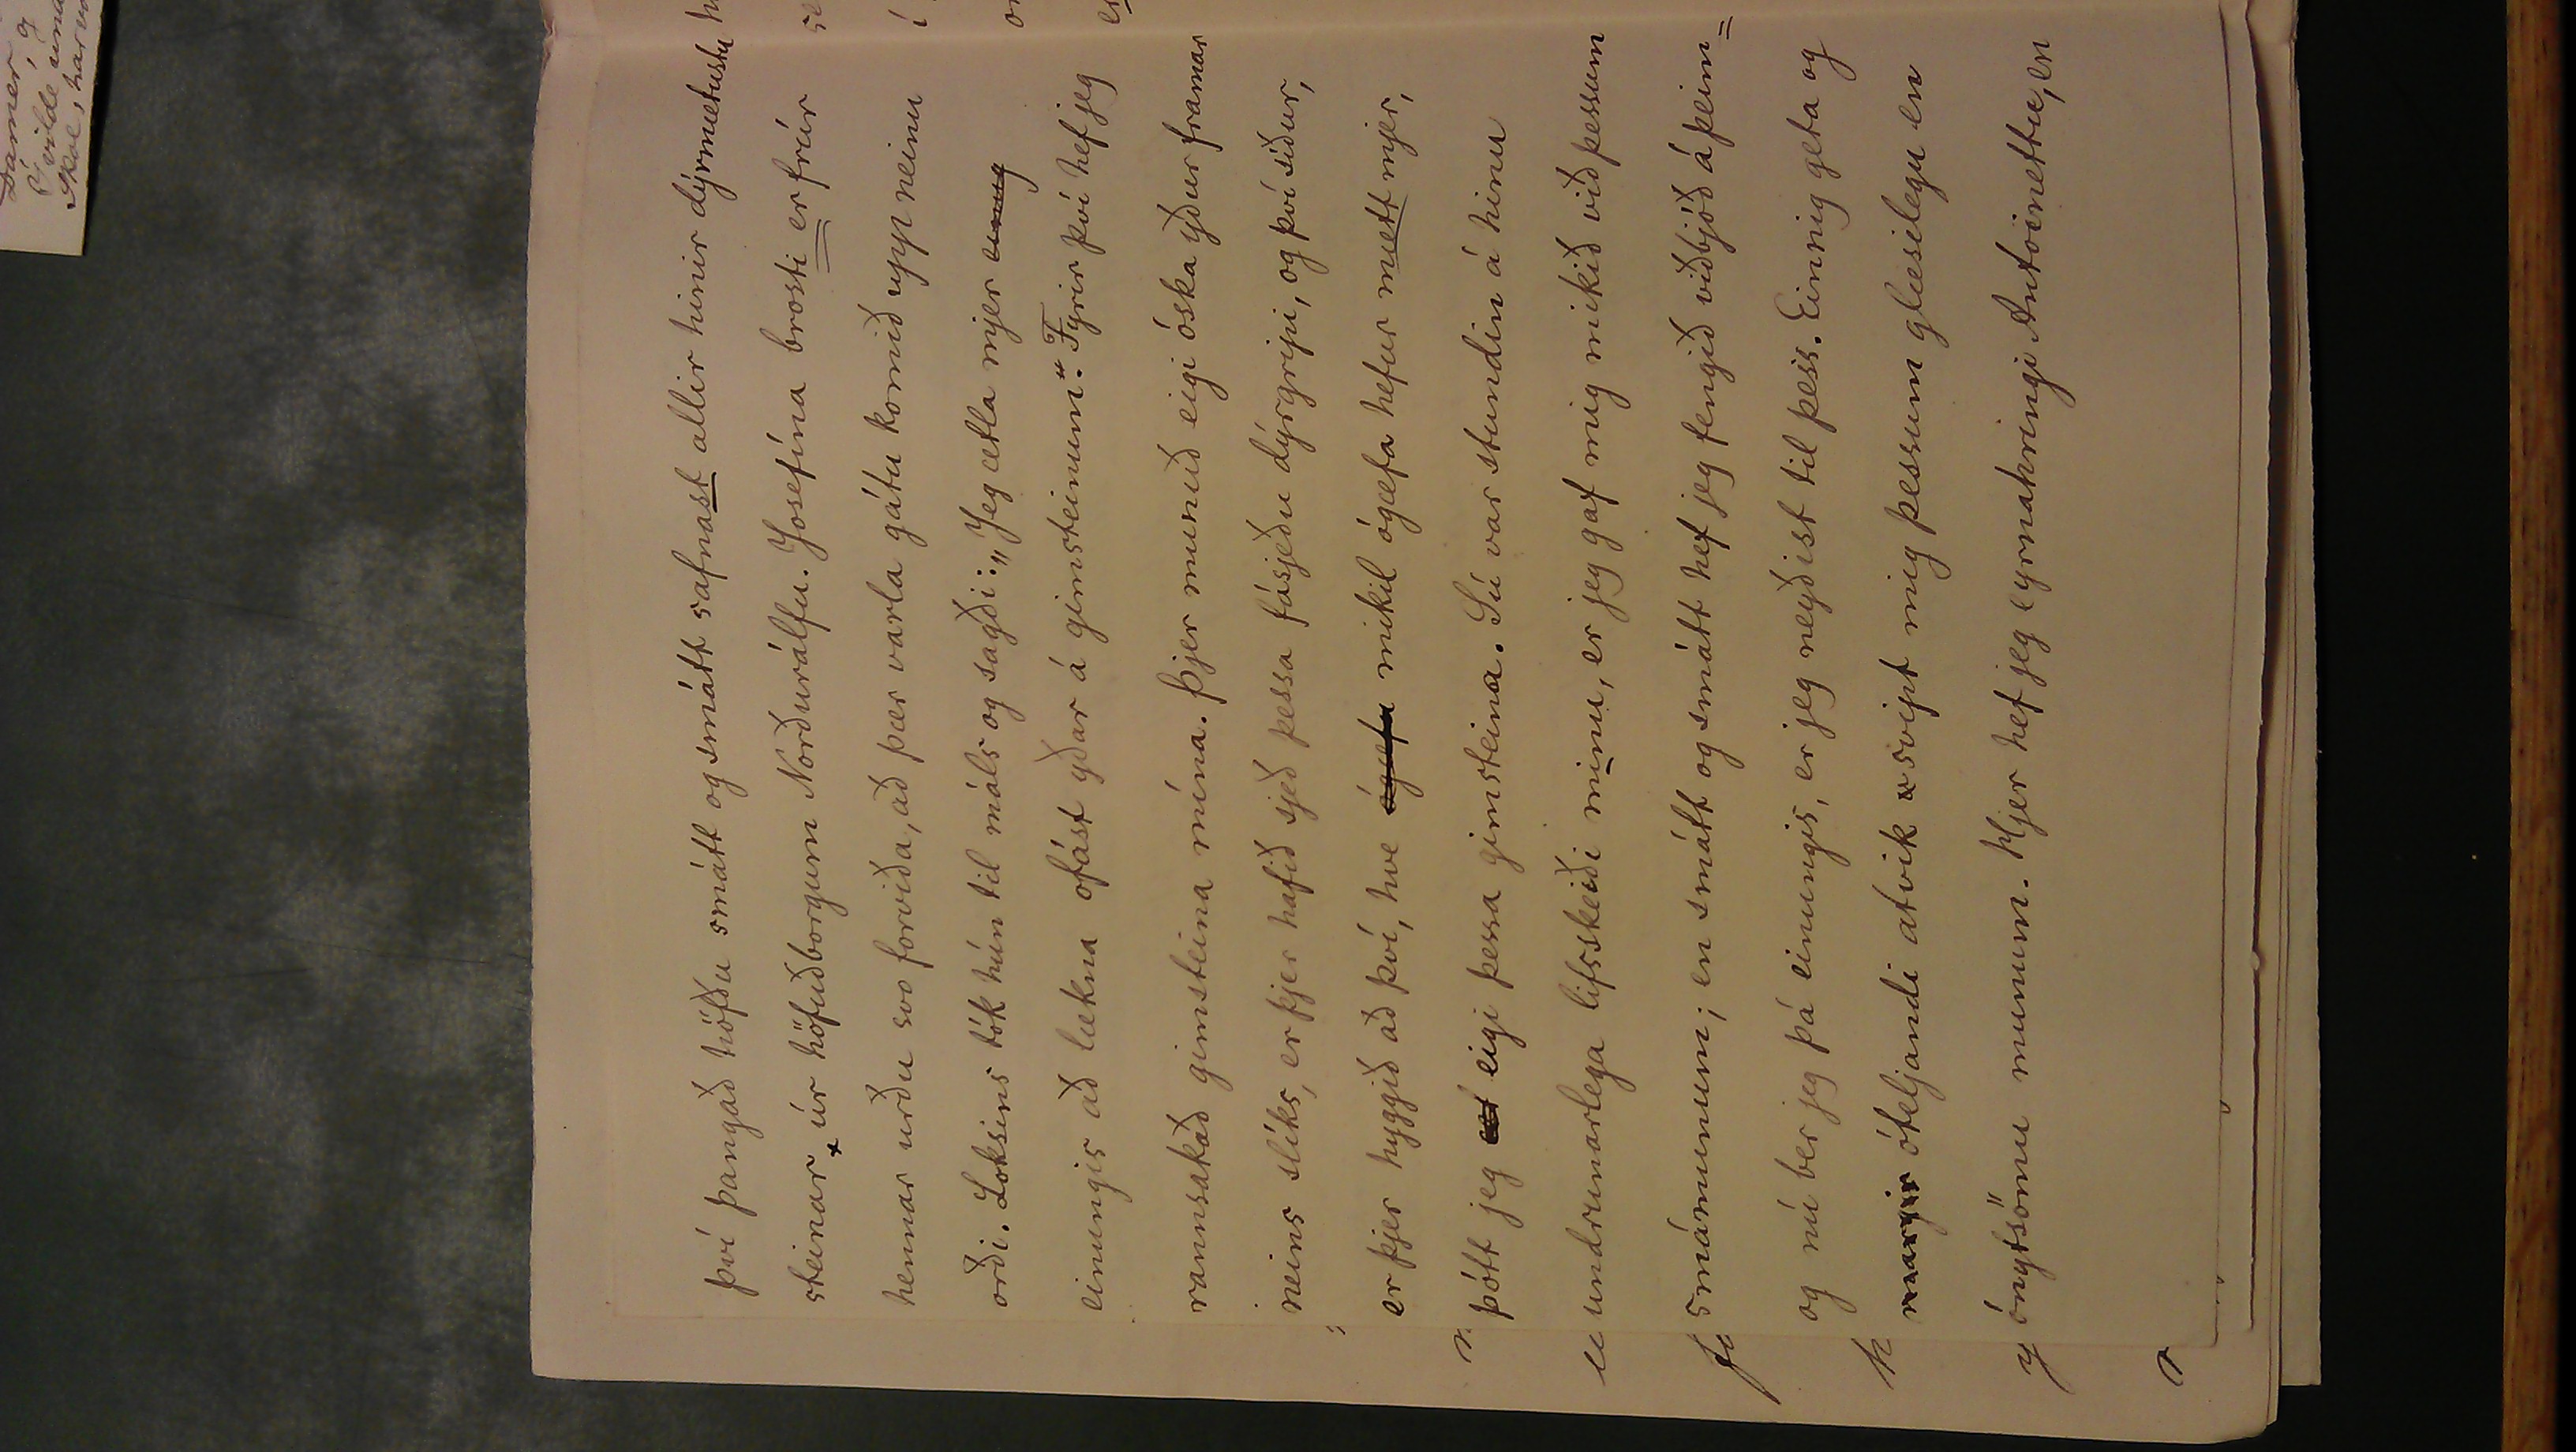 því þangað höfðu smátt og smátt safnast allir hinir dýrmætustu
steinar úr höfuðborgum Norðurálfu. Josefína brosti er frúr
hennar urðu svo forviða, að þær varla gátu komið upp neinu
orði. Loksins tók hún til máls og sagði: „Jeg ætla mjer einung
einungis að lækna ofást yðar á gimsteinum“. Fyrir því hef jeg
rannsakað gimsteina mína. Þjer munuð eigi óska yður framar
neins slíks, er þjer hafið sjeð þessa fásjeðu dýrgripi, og því síður,
er þjer hyggið að því, hve ógæfa mikil ógæfa hefur mætt mjer,
þótt jeg ei eigi þessa gimsteina. Sú var stundin á hinu
undrunarlega lífsskeiði mínu, er jeg gaf mig mikið við þessum
smámunum; en smátt og smátt hef jeg fengið viðbjóð á þeim=
og nú ber jeg þá einungis, er jeg neyðist til þess. Einnig geta og
margir óteljandi atvik svipt mig þessum glæsilegu en
ónytsömu munum. Hjer hef jeg eyrnahringi Antoinettu, en
Damer, og